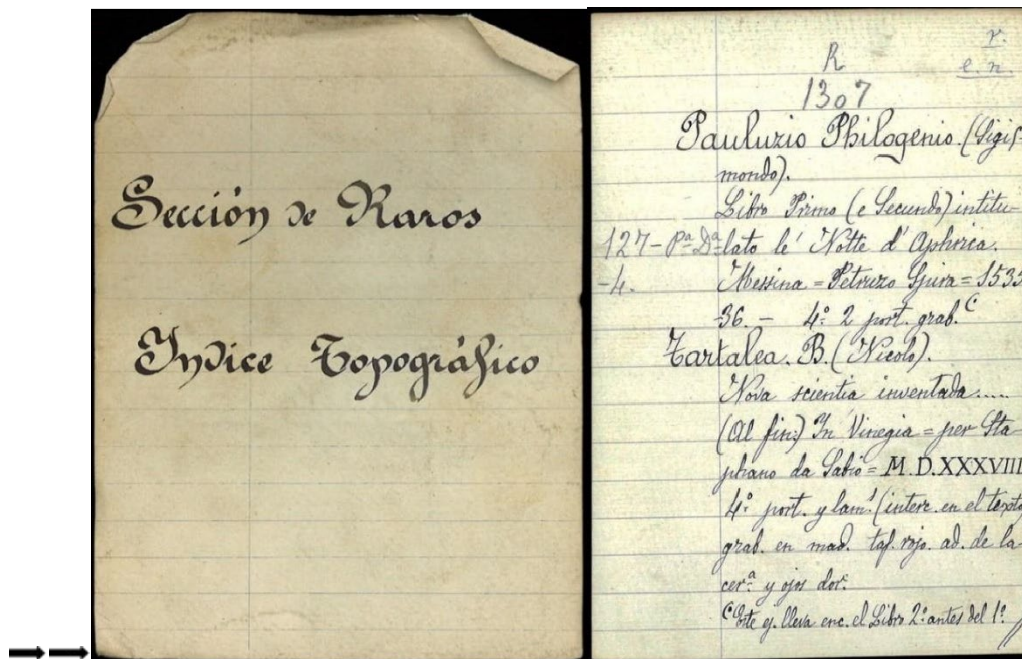 Sección de Raros
Yndice Topográfico
R
r.
e. n.
1307
Pauluzio Philogenio. (Sigis-
mondo).
Libro Primo (e Secundo) intitu-
127- Pª Dª lato le' Notte d' Aphrica.
-4. Messina = Petruzo Spira = 1535
-36. - 4º 2 port. grab. C
Tartalea. B. (Nicolo).
Nova scientia inventada.....
(Al fin:) In Vinegia = per Sta-
phano da Sabio = M.D.XXXVIII
4º port. y lams (interc. en el texto
grab. en mad. taf. rojo. ad. de la
cerª y ojos dors
C Este ej. lleva enc. el Libro 2º antes del 1º